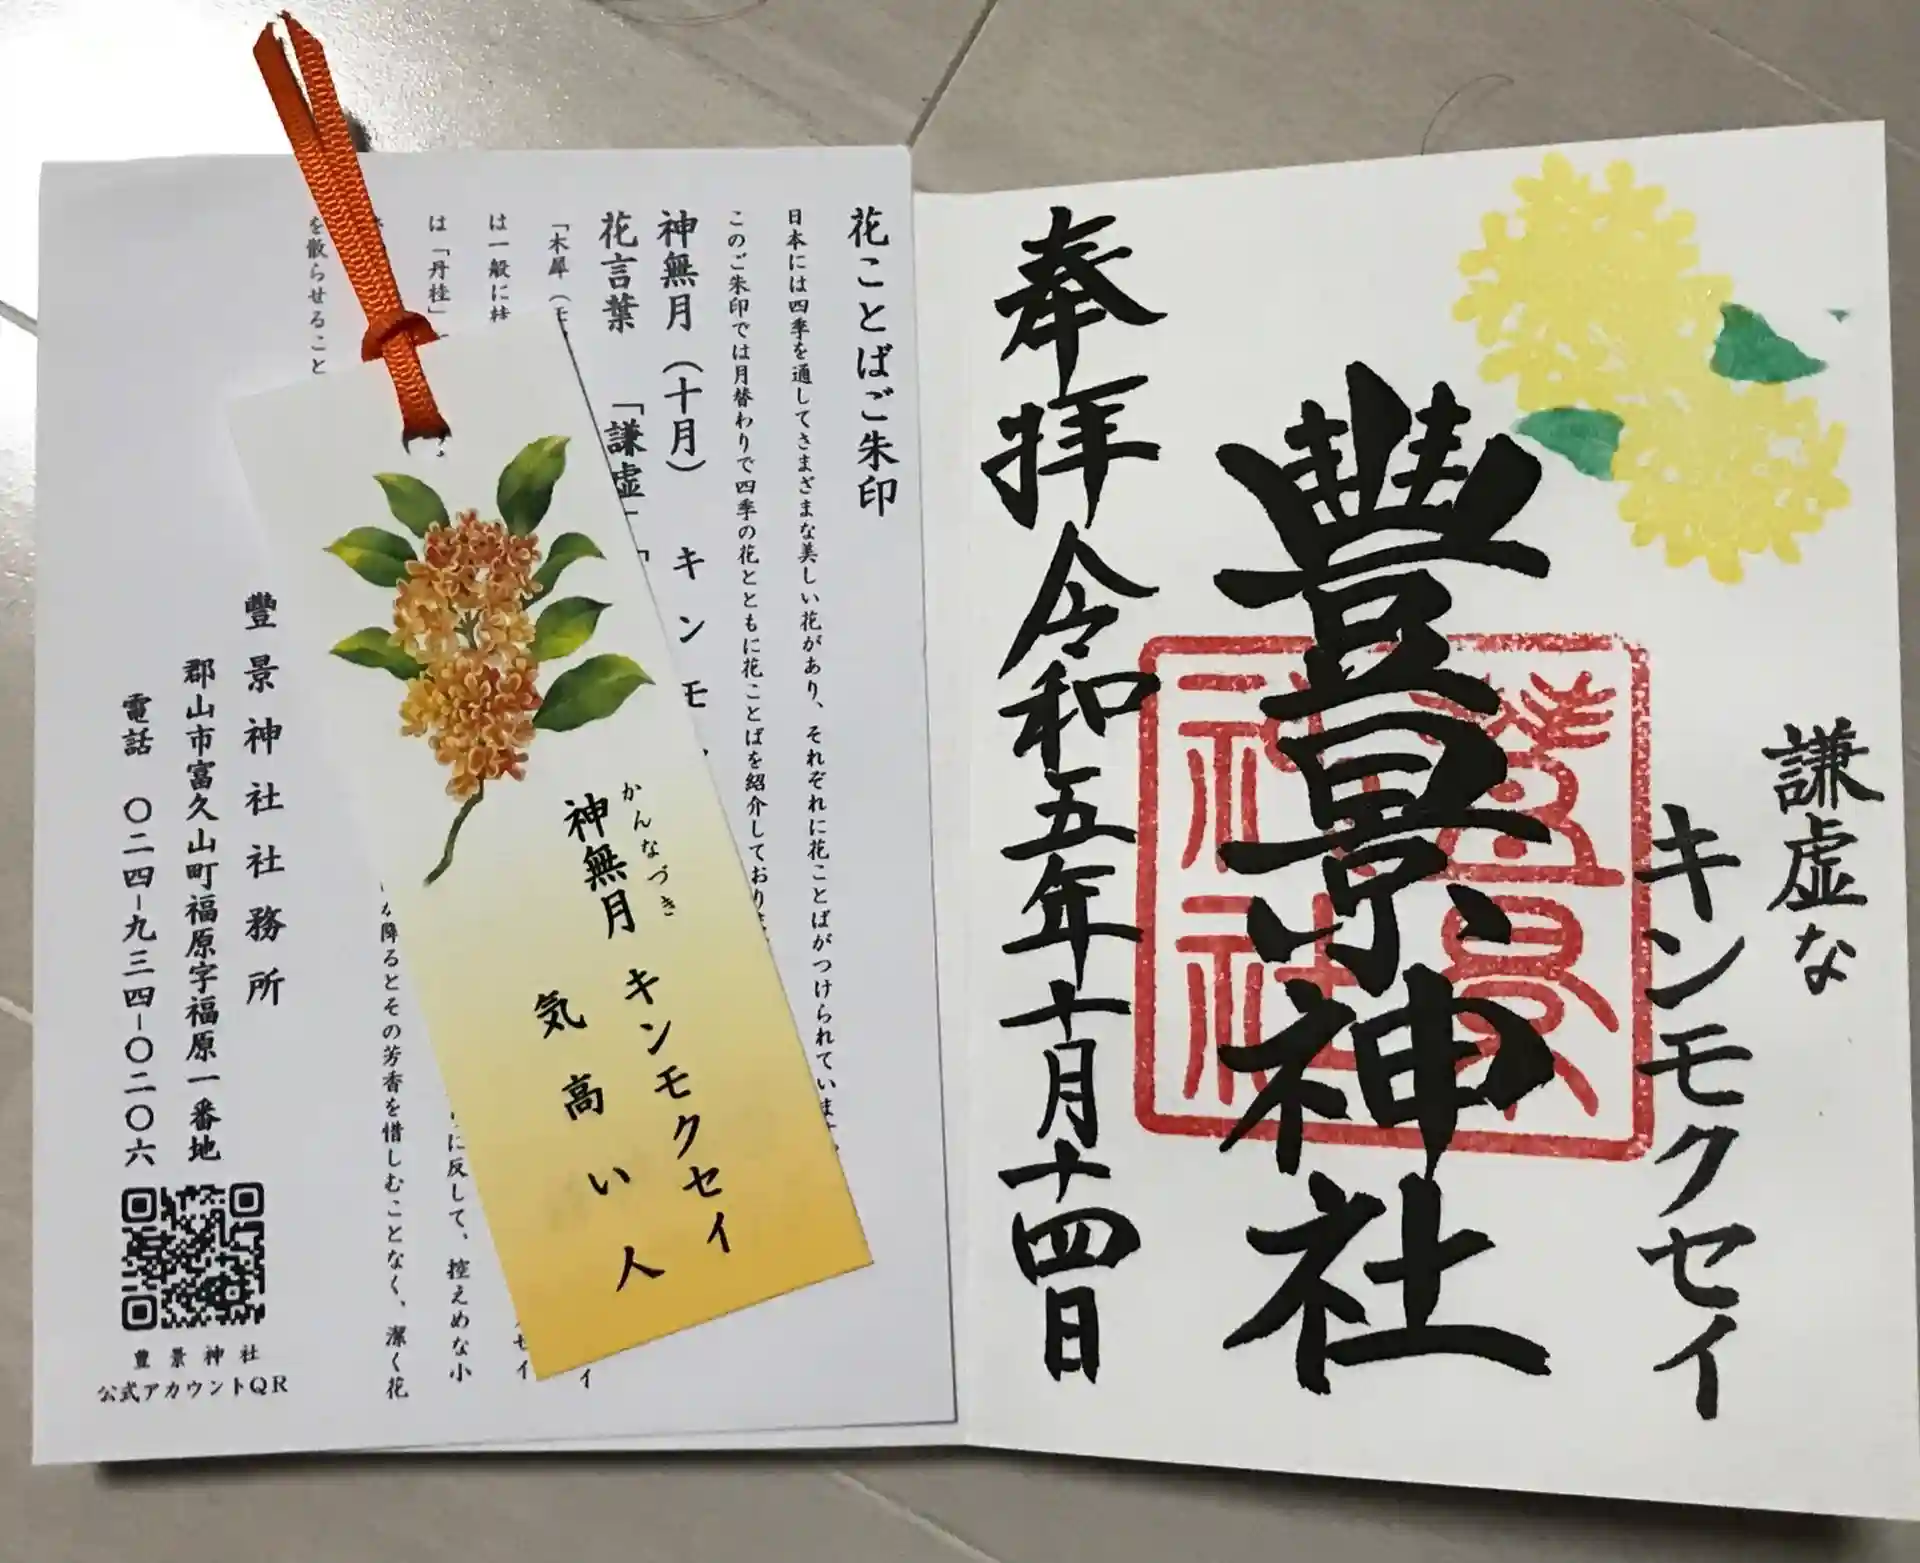 謙虚な
キンモクセイ
豊景神社
奉拝 令和五年十月十四日
豊景神社
花ことばご朱印
日本には四季を通してさまざまな美しい花があり、それぞれに花ことばがつけられていま
このご朱印では月替わりで四季の花とともに花ことばを紹介しており
神無月(十月) キンモ
花言葉 「謙虚」「
「木犀(モ
は一般に
は「丹桂」
に反して、控えめな小
降るとその芳香を惜しむことなく、潔く花
を散らせること
豊景神社社務所
郡山市富久山町福原字福原一番地
電話 〇二四-九三四-〇二〇六
豊景神社
公式アカウントQR
かんなづき
神無月 キンモクセイ
気高い人